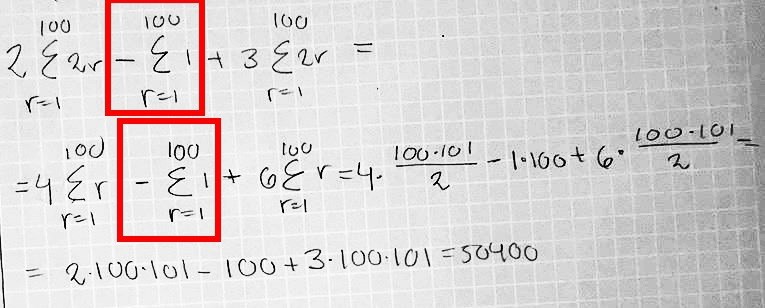 2 \sum_{r=1}^{100} 2r - \sum_{r=1}^{100} 1 + 3 \sum_{r=1}^{100} 2r =
= 4 \sum_{r=1}^{100} r - \sum_{r=1}^{100} 1 + 6 \sum_{r=1}^{100} r = 4 \cdot \frac{100 \cdot 101}{2} - 1 \cdot 100 + 6 \cdot \frac{100 \cdot 101}{2} =
= 2 \cdot 100 \cdot 101 - 100 + 3 \cdot 100 \cdot 101 = 50400